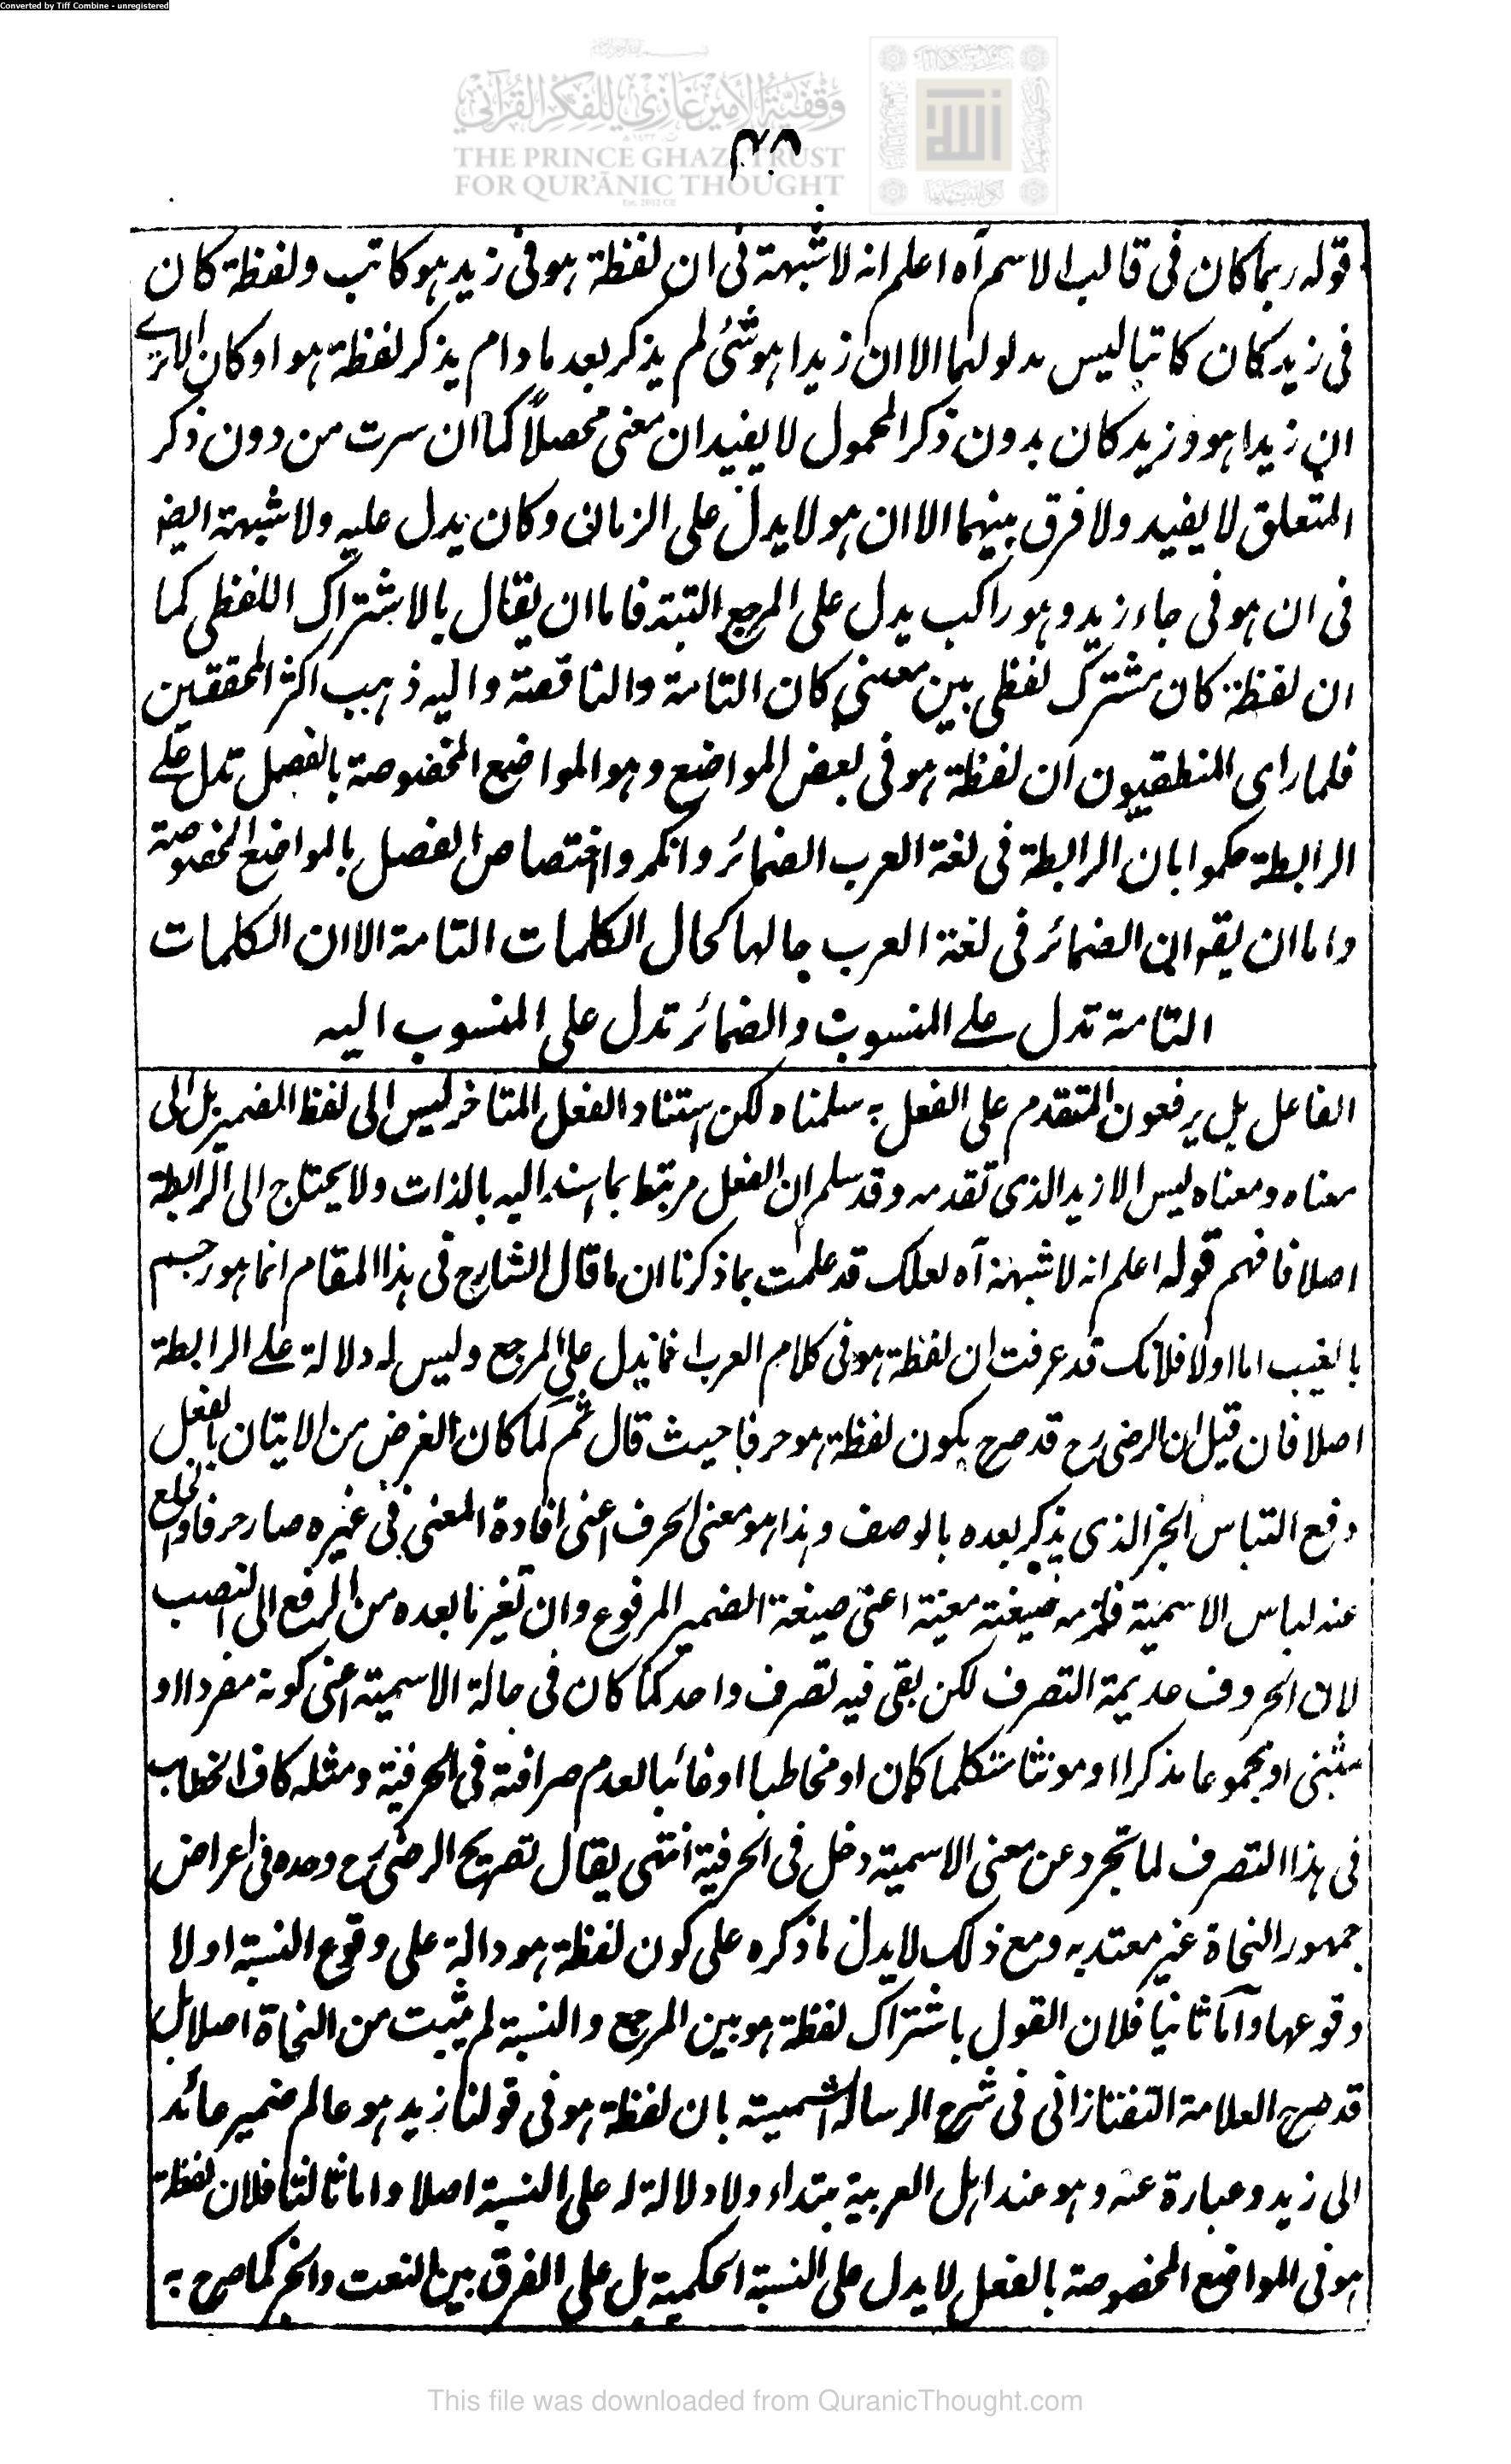 Converted by Tiff Combine - unregistered
وقفية الأمير غازي للفكر القرآني
THE PRINCE GHAZI TRUST
FOR QUR'ĀNIC THOUGHT
قوله ربما كان فى قالب الاسم آه اعلم انه لا شبهة فى ان لفظة هو فى زيد هو كاتب ولفظة كان
فى زيد كان كاتبا ليس مدلولهما الا ان زيدا هو شئ لم يذكر بعد ما دام يذكر لفظة هو او كان الا ترے
ان زيدا هو و زيد كان بدون ذكر المحمول لا يفيدان معنى محصلاً كما ان سرت من دون ذكر
المتعلق لا يفيد ولا فرق بينهما الا ان هو لا يدل على الزمان وكان يدل عليه ولا شبهة ايضا
فى ان هو فى جاء زيد وهو راكب يدل على المرجع البتة فاما ان يقال بالاشتراك اللفظى كما
ان لفظة كان مشترك لفظى بين معنيى كان التامة والناقصة واليه ذهب اكثر المحققين
فلما راى المنطقيون ان لفظة هو فى بعض المواضع وهو المواضع المخصوصة بالفصل تدل علے
الرابطة حكموا بان الرابطة فى لغة العرب الضمائر وانكروا اختصاص الفصل بالمواضع المخصوصة
واما ان يقه ان الضمائر فى لغة العرب حالها كحال الكلمات التامة الا ان الكلمات
التامة تدل علے المنسوب والضمائر تدل على المنسوب اليه
الفاعل بل يرفعون المتقدم على الفعل به سلمناه لكن استناد الفعل المتاخر ليس الى لفظ الضمير بل الى
معناه ومعناه ليس الا زيد الذى تقدمه وقد سلم ان الفعل مرتبط بما اسند اليه بالذات ولا يحتاج الى الرابطة
اصلا فافهم قوله اعلم انه لا شبهة آه لعلك قد علمت بما ذكرنا ان ما قال الشارح فى هذا المقام انما هو رجم
بالغيب اما اولا فلانك قد عرفت ان لفظة هو فى كلام العرب انما يدل على المرجع وليس له دلالة علے الرابطة
اصلا فان قيل ان الرضى رح قد صرح بكون لفظة هو حرفا حيث قال ثم لما كان الغرض من الاتيان بالفصل
دفع التباس الخبر الذى يذكر بعده بالوصف وهذا هو معنى الحرف اعنى افادة المعنى فى غيره صار حرفا وانخلع
عنه لباس الاسمية فلزمه صيغة معينة اعنى صيغة الضمير المرفوع وان تغير ما بعده من الرفع الى النصب
لان الحروف عديمة التصرف لكن بقى فيه تصرف واحد كما كان فى حالة الاسمية اعنى كونه مفردا او
مثنى او مجموعا مذكرا او مونثا متكلما كان او مخاطبا او غائبا لعدم صرافته فى الحرفية ومثله كاف الخطاب
فى هذا التصرف لما تجرد عن معنى الاسمية دخل فى الحرفية انتهى يقال تصريح الرضى رح وحده فى اعراض
جمهور النحاة غير معتد به ومع ذلك لا يدل ما ذكره على كون لفظة هو دالة على وقوع النسبة او لا
وقوعها واما ثانيا فلان القول باشتراك لفظة هو بين المرجع والنسبة لم يثبت من النحاة اصلا بل
قد صرح العلامة التفتازانى فى شرح الرسالة الشمسية بان لفظة هو فى قولنا زيد هو عالم ضمير عائد
الى زيد وعبارة عنه وهو عند اهل العربية مبتداء ولا دلالة له على النسبة اصلا واما ثالثا فلان لفظة
هو فى المواضع المخصوصة بالفصل لا يدل على النسبة الحكمية بل على الفرق بين النعت والخبر كما صرح به
This file was downloaded from QuranicThought.com